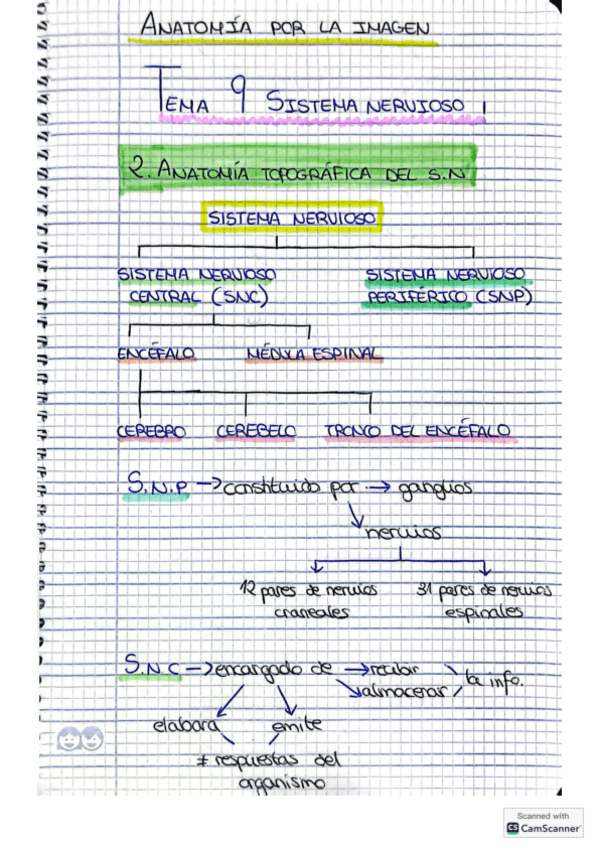 ANATOMÍA POR LA IMAGEN
TEMA 9 SISTEMA NERVIOSO
2. ANATOMÍA TOPOGRÁFICA DEL S.N.
SISTEMA NERVIOSO
SISTEMA NERVIOSO CENTRAL (SNC)
SISTEMA NERVIOSO PERIFÉRICO (SNP)
ENCÉFALO MÉDULA ESPINAL
CEREBRO CEREBELO TRONCO DEL ENCÉFALO
S.N.P → constituido por → ganglios
nervios
12 pares de nervios craneales
31 pares de nervios espinales
S.N.C → encargado de → recibir
almacenar
la info.
elabora emite
≠ respuestas del
organismo
Scanned with
CS CamScanner